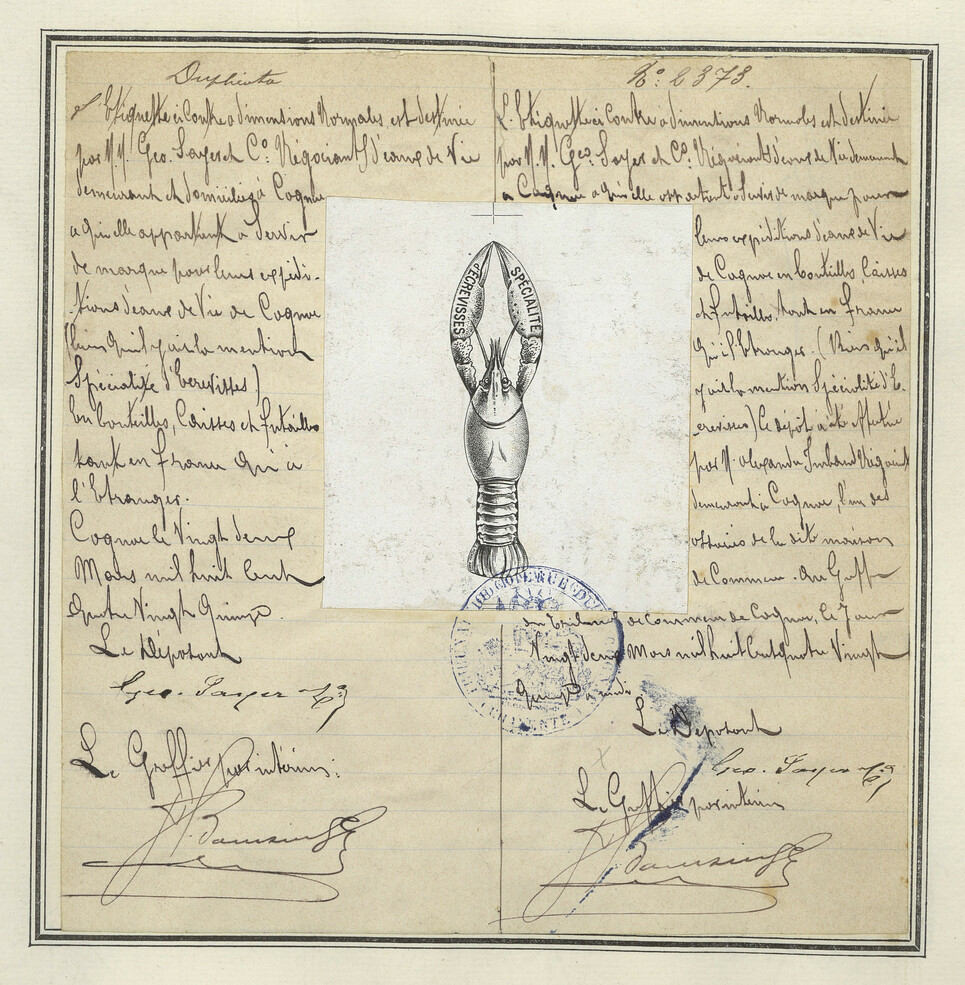 Duplicata
L'Etiquette ci contre a dimentions Normales est destinée
par MM. Geo. Sayer et Co. Négociants d'eaux de Vie
demeurant et domiciliés à Cognac
a qui elle appartient a Servir
de marque pour leurs expédi-
tions d'eaux de Vie de Cognac
(bien qu'il y ait la mention
Spécialité d'Ecrevisses)
En bouteilles, Caisses et futailles
tant en France qu'a
l'Etranger.
Cognac le Vingt deux
Mars mil huit Cent
Quatre Vingt Quinze.
Le Déposant
Geo. Sayer & Co
Le Greffier par intérim:
No. 2373.
L'Etiquette ci Contre a dimentions Normales est destinée
par MM. Geo. Sayer et Co. Négociants d'eaux de Vie demeurant
a Cognac a qui elle appartient a Servir de marque pour
leurs expéditions d'eaux de Vie
de Cognac en bouteilles, Caisses
et futailles, tant en France
qu'a l'Etranger. (Bien qu'il
y ait la mention Spécialité d'E-
crevisses) Ce dépôt a été effectué
par M. Alexandre Négociant
demeurant a Cognac, l'un des
associés de la dite maison
de Commerce. Au Greffe
du Tribunal de Commerce de Cognac, le Jour
Vingt deux Mars mil huit Cent quatre Vingt
quinze a midi
Le Déposant
Geo. Sayer & Co
Le Greffier par intérim
SPÉCIALITÉ
D'ÉCREVISSES